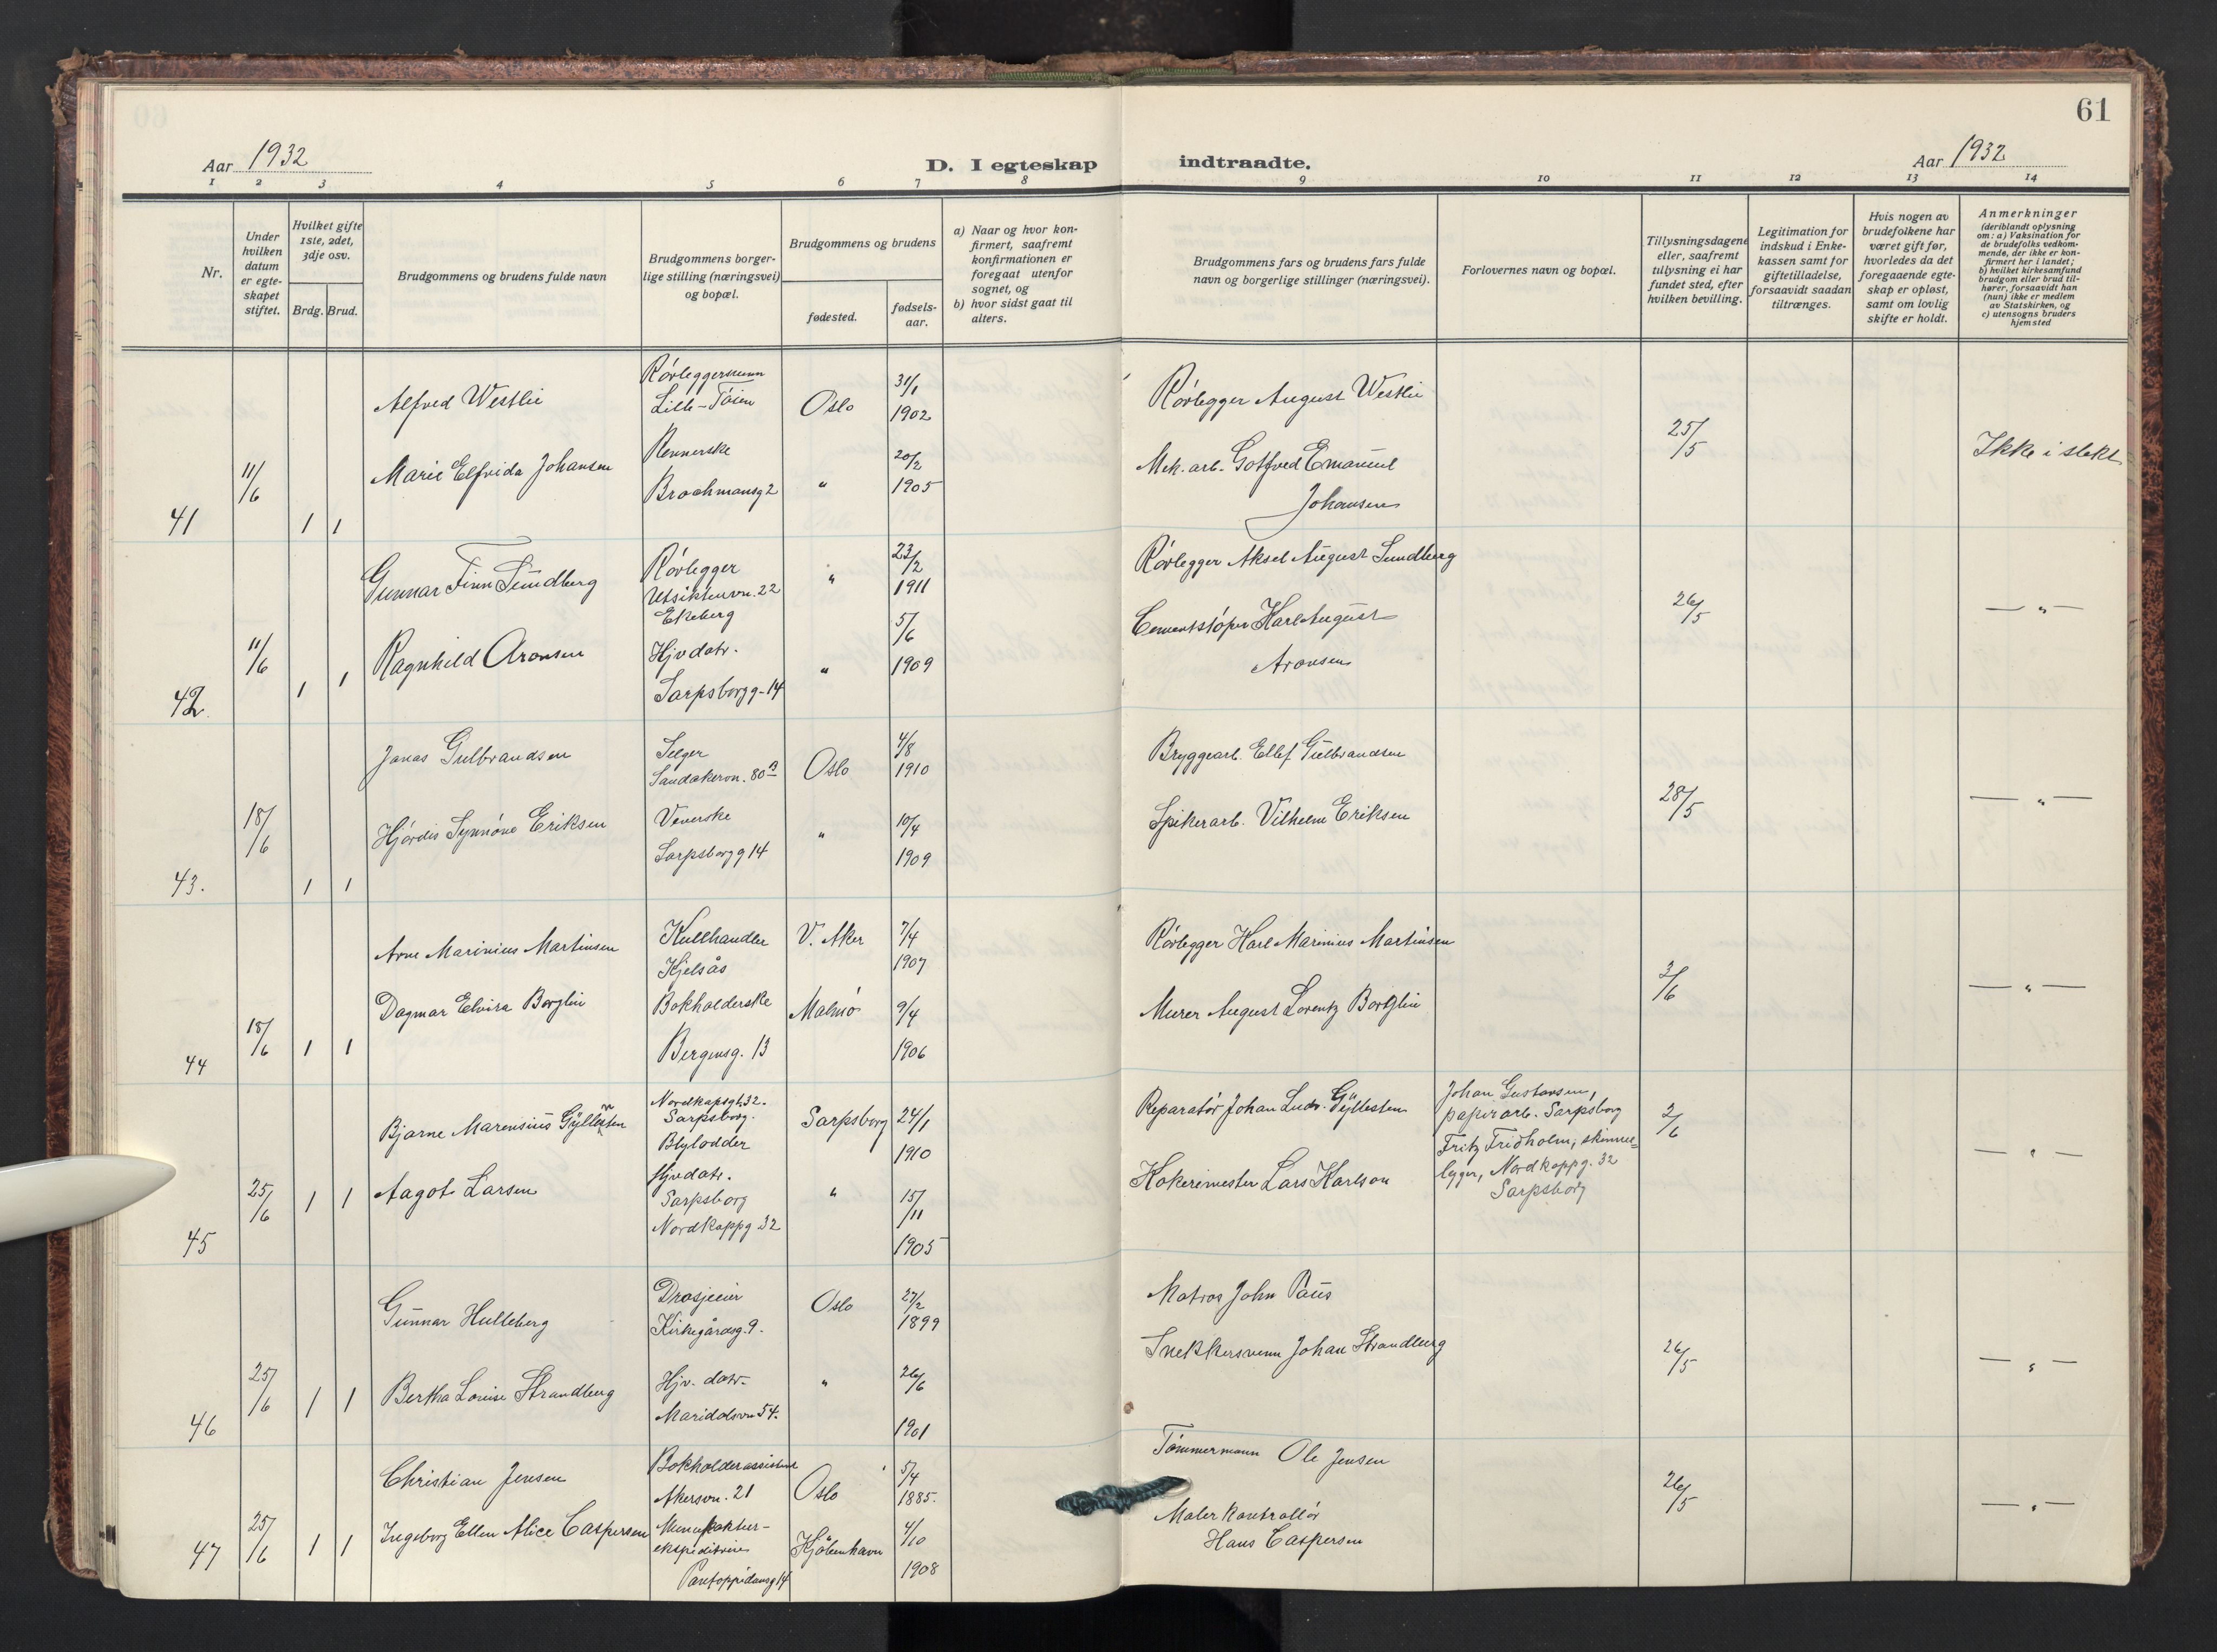 61
Aar 1932
D. I egteskap indtraadte.
Aar 1932
1 2 3 4 5 6 7 8 9 10 11 12 13 14
Nr.
Under hvilken datum er egteskapet stiftet.
Hvilket gifte 1ste, 2det, 3dje osv.
Brdg. Brud.
Brudgommens og brudens fulde navn
Brudgommens borgerlige stilling (næringsvei) og bopæl.
Brudgommens og brudens
fødested.
fødselsaar.
a) Naar og hvor konfirmert, saafremt konfirmationen er foregaat utenfor sognet, og
b) hvor sidst gaat til alters.
Brudgommens fars og brudens fars fulde navn og borgerlige stillinger (næringsvei).
Forlovernes navn og bopæl.
Tillysningsdagene eller, saafremt tillysning ei har fundet sted, efter hvilken bevilling.
Legitimation for indskud i Enkekassen samt for giftetilladelse, forsaavidt saadan tiltrænges.
Hvis nogen av brudefolkene har været gift før, hvorledes da det foregaaende egteskap er opløst, samt om lovlig skifte er holdt.
Anmerkninger (deriblandt oplysning om: a) Vaksination for de brudefolks vedkommende, der ikke er konfirmert her i landet; b) hvilket kirkesamfund brudgom eller brud tilhører, forsaavidt han (hun) ikke er medlem av Statskirken, og c) utensogns bruders hjemsted
41 11/6 1 1
Alfred Westlie
Rørleggersvenn
Lille-Tøien
Oslo
31/1
1902
Rørlegger August Westlie
25/5
Ikke i slekt
Marie Elfrida Johansen
Rennerske
Brochmansg 2
"
20/2
1905
Mek. arb. Gotfred Emanuel
Johansen
42 11/6 1 1
Gunnar Finn Sundberg
Rørlegger
Utsiktenvn. 22
Ekeberg
"
23/2
1911
Rørlegger Aksel August Sundberg
26/5
— " —
Ragnhild Aronsen
Hjv datr.
Sarpsborgg-14
"
5/6
1909
Cementstøper Karl August
Aronsen
43. 18/6 1 1
Jonas Gulbrandsen
Selger
Sandakervn. 80 B
Oslo
4/8
1910
Bryggearb. Ellef Gulbrandsen
28/5
— " —
Hjørdis Synnøve Eriksen
Veverske
Sarpsborgg 14
"
10/4
1909
Spikerarb. Vilhelm Eriksen
44 18/6 1 1
Arne Marinius Martinsen
Kullhandler
Kjelsås
V. Aker
7/4
1907
Rørlegger Karl Marinius Martinsen
3/6
— " —
Dagmar Elvira Borglin
Bokholderske
Bergensg. 13
Malmø
9/4
1906
Murer August Lorentz Borglin
45 25/6 1 1
Bjarne Marensius Gyllesten
Nordkapsgt. 32.
Sarpsborg.
Blylodder
Sarpsborg
24/1
1910
Reparatør Johan Ludv. Gyllesten
Johan Gustavsen,
papirarb. Sarpsborg
Fritz Fridholm, skinne=
legger, Nordkappg. 32
Sarpsborg
2/6
— " —
Aagot Larsen
Hjvdatr.
Sarpsborg
Nordkappg 32
"
15/11
1905
Hokeremester Lars Karlson
46 25/6 1 1
Gunnar Hulleberg
Drosjeeier
Kirkegårdsg. 9.
Oslo
27/2
1899
Matros John Paus
26/5
— " —
Bertha Louise Strandberg
Hjv. datr.
Maridalsvn 54.
"
26/6
1901
Snekkersvenn Johan Strandberg
47 25/6 1 1
Christian Jensen
Bokholderassistent
Akersvn. 21
Oslo
5/4
1885.
Tømmermann Ole Jensen
26/5
— " —
Ingeborg Ellen Alice Caspersen
Manufaktur-
ekspeditrise
Pantoppidansg 14
Kjøbenhavn
4/10
1908
Maler kontrollør
Hans Caspersen